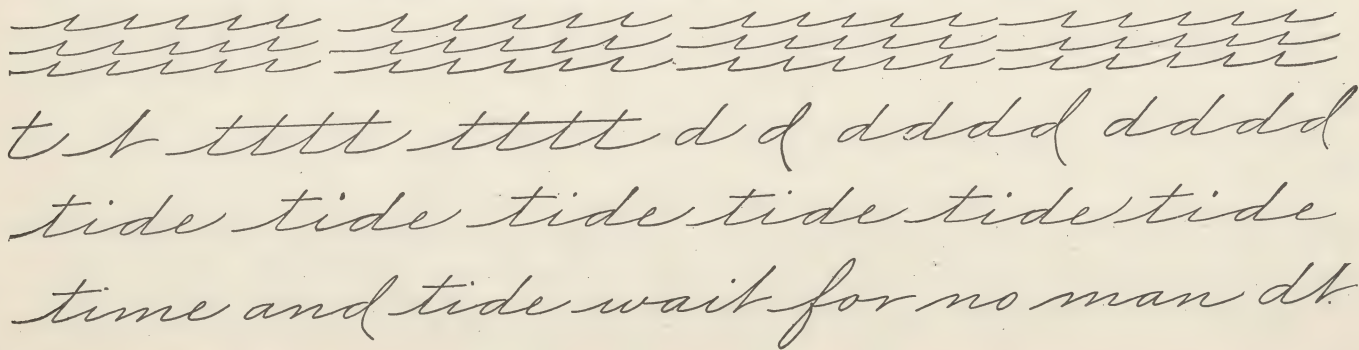 t t tttt ttttt d d ddddd dddd
tide tide tide tide tide tide
time and tide wait for no man dt